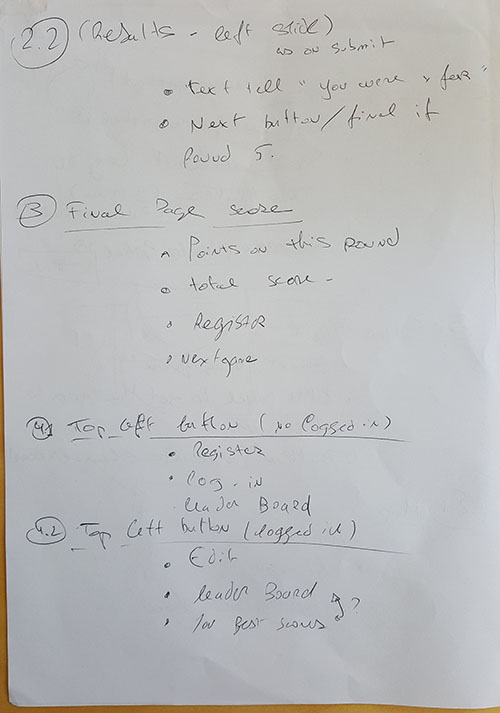 2.2 (Results - left slide)
as on submit
• text tell "you were x far"
• Next button/final if
Round 5.
3 Final Page score
• Points on this Round
• total score -
• Register
• Next game
4.1 Top left button (no logged in)
• Register
• log-in
leader Board
4.2 Top left button (logged in)
• Edit
• leader Board
• Best scores ?